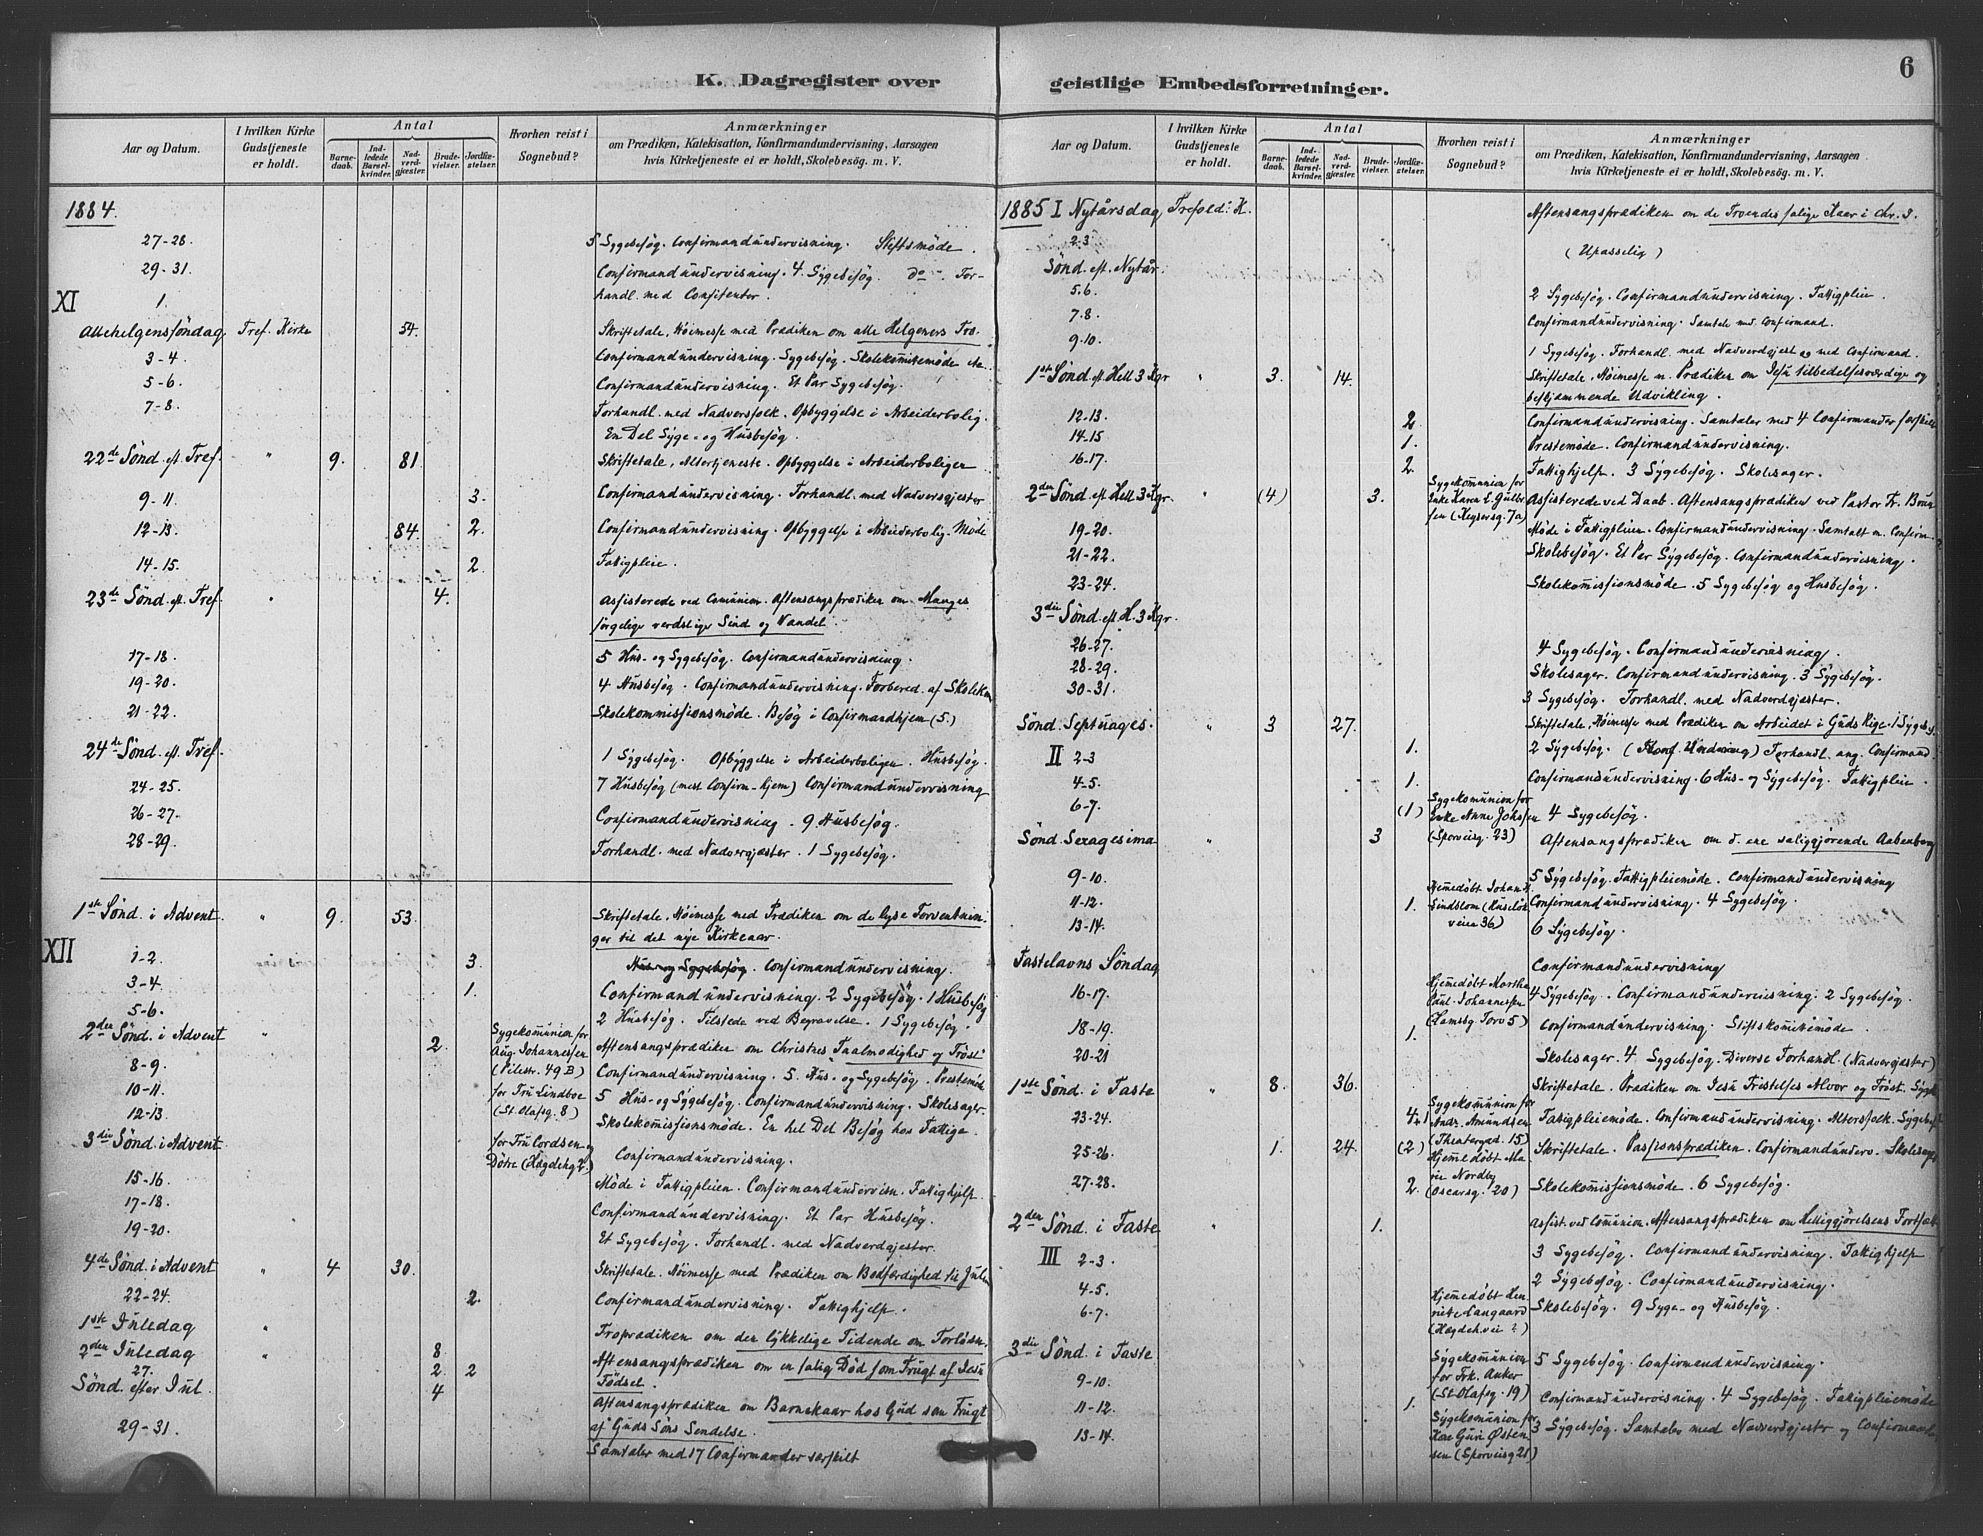 K. Dagregister over
Aar og Datum.
I hvilken Kirke Gudstjeneste er holdt.
Antal
Barne-daab.
Ind-ledede Barsel-kvinder.
Nad-verd-gjæster.
Brude-vielser.
Jordfæ-stelser.
Hvorhen reist i Sognebud?
Anmærkninger
om Prædiken, Katekisation, Konfirmandundervisning, Aarsagen
hvis Kirketjeneste ei er holdt, Skolebesøg. m. V.
1884.
27-28. 5 Sygebesøg. Confirmandundervisning. Stiftsmöde.
29-31. Confirmandundervisning. 4 Sygebesøg. do. For-
handl. med Confitenter.
XI 1.
Allehelgensföndag Tref. Kirke 54. Skriftetale, Höimesse med Prædiken om alle Helgeners Tro.
3-4. Confirmandundervisning. Sygebesøg. Skolekomitemöde
5-6. Confirmandundervisning. Et Par Sygebesøg.
7-8. Forhandl. med Nadversfolk. Opbyggelse i Arbeiderbolig.
En Del Syge- og Husbesøg.
22de Sönd. eft. Tref. " 9. 81. Skriftetale, Altertjeneste. Opbyggelse i Arbeiderboliger
9-11. 3. Confirmandundervisning. Forhandl. med Nadversgjester
12-13. 84. 2. Confirmandundervisning. Opbyggelse i Arbeiderbolig. Möde
14-15. 2. Fattigpleie.
23de Sönd. eft. Tref. " 4. Assisterede ved Comunion. Aftensangsprædiken om Manges
sörgelige verdslige Sind og Vandel.
17-18. 5 Hus- og Sygebesøg. Confirmandundervisning.
19-20. 4 Husbesøg. Confirmandundervisning. Forbered. af Skolekom
21-22. Skolekommissionsmöde. Besøg i Confirmandhjem (5.)
24de Sönd. eft. Tref. 1 Sygebesøg. Opbyggelse i Arbeiderboligen. Husbesøg.
24-25. 7 Husbesøg (mest Confirm-hjem) Confirmandundervisning
26-27. Confirmandundervisning. 9 Husbesøg.
28-29. Forhandl. med Nadvergjæster. 1 Sygebesøg.
1ste Sönd. i Advent. " 9. 53. Skriftetale, Höimesse med Prædiken om de lyse Forventnin-
ger til det nye Kirkeaar.
XII 1-2. 3. Hus og Sygebesøg. Confirmandundervisning.
3-4. 1. Confirmandundervisning. 2 Sygebesøg. 1 Husbesøg
5-6. 2 Husbesøg. Tilstede ved Begravelse. 1 Sygebesøg.
2den Sönd. i Advent " 2. Sygekommunion for Aug. Johannessen (Pilestr. 49 B) Aftensangsprædiken om Christnes Taalmodighed og Tröst
8-9. Confirmandundervisning. 5 Hus- og Sygebesøg. Prestemöde
10-11. for Fru Lindboe (St. Olafsg. 8) 5 Hus- og Sygebesøg. Confirmandundervisning. Skolesager.
12-13. Skolekomissionsmöde. En hel Del Besøg hos Fattige.
3die Sönd. i Advent for Fru Cordsen og Dötre (Hægdehg 2.) Confirmandundervisning.
15-16. Möde i Fattigpleien. Confirmandundervisn. Fattighjelp.
17-18. Confirmandundervisning. Et Par Husbesøg.
19-20. Et Sygebesøg. Forhandl. med Nadverdgjester.
4de Sönd. i Advent " 4 30. Skriftetale. Höimesse med Prædiken om Bodfærdighed til Julen
22-24. 2. Confirmandundervisning. Fattighjelp.
1ste Juledag " Froprædiken om den lykkelige Tidende om Forlösn.
2den Juledag " 8. Aftensangsprædiken om en salig Död som Frugt af Jesu
27. 2. 2 Födsel.
Sönd. efter Jul. 4 Aftensangsprædiken om Barnekaar hos Gud som Frugt
29-31. af Guds Söns Sendelse.
Samtaler med 17 Confirmander særskilt
geistlige Embedsforretninger.
6
Aar og Datum.
I hvilken Kirke Gudstjeneste er holdt.
Antal
Barne-daab.
Ind-ledede Barsel-kvinder.
Nad-verd-gjæster.
Brude-vielser.
Jordfæ-stelser.
Hvorhen reist i Sognebud?
Anmærkninger
om Prædiken, Katekisation, Konfirmandundervisning, Aarsagen
hvis Kirketjeneste ei er holdt, Skolebesøg. m. V.
1885 I Nytårsdag Trefold: K. Aftensangsprædiken om de Troendes salige Kaar i Chr. J.
2.3 (Upasselig)
Sönd. eft. Nytår.
5.6. 2 Sygebesøg. Confirmandundervisning. Fattigpleie.
7.8. Confirmandundervisning. Samtale med Confirmand.
9.10. 1 Sygebesøg. Forhandl. med Nadverdgjest og med Confirmand.
1ste Sönd. eft Hell 3 Kgr " 3. 14. Skriftetale, Höimesse m. Prædiken om Jesu tilbedelsesværdige og
beskjæmmende Udvikling.
12-13. 2. Confirmandundervisning. Samtaler med 4 Confirmander særskilt
14-15 1. Prestemöde. Confirmandundervisning.
16-17. 2. Fattighjelp. 3 Sygebesøg. Skolesager.
2den Sönd eft Hell 3 Kgr " (4) 3. Sygekommunion for Enke Karen E. Gulbrandsen (Keysersg. 7a) Assisterede ved Daab. Aftensangsprædiken ved Pastor Fr. Brun
19-20. Möde i Fattigpleien. Confirmandundervisning. Samtalt m. Confirm.
21-22. Skolebesøg. Et Par Sygebesøg. Confirmandundervisning.
23-24. Skolekomissionsmöde. 5 Sygebesøg og Husbesøg.
3die Sönd eft H. 3 Kgr.
26-27. 4 Sygebesøg. Confirmandundervisning.
28-29. Skolesager. Confirmandundervisning. 3 Sygebesøg.
30-31. 3 Sygebesøg. Forhandl. med Nadverdgjester.
Sönd. Septuages. " 3 27. Skriftetale, Höimesse med Prædiken om Arbeidet i Guds Rige. 1 Sygebes.
II 2-3 1. 2 Sygebesøg. Forhandl. ang. Confirmand.
4-5. 1. Confirmandundervisning. 6 Hus- og Sygebesøg. Fattigpleie.
6-7. (1) Sygekomunion for Enke Anne Johsen (Sporveisg. 23) 4 Sygebesøg.
Sönd. Sexagesima " 3 Aftensangsprædiken om d. ene saliggjørende Aabenbarg
9-10. 5 Sygebesøg. Fattigpleiemöde. Confirmandundervisning
11-12. 1. Hjemedöbt Johan Lindstöm 36) Confirmandundervisning. 4 Sygebesøg.
13-14. 6 Sygebesøg.
Fastelavns Söndag Confirmandundervisning
16-17. Hjemedöbt Martha Johannessen (Hamsbg. Torv 5) 4 Sygebesøg. Confirmandundervisning. 2 Sygebesøg.
18-19. 1. Confirmandundervisning. Stiftskomitemöde.
20-21 Skolesager. 4 Sygebesøg. Diverse Forhandl. (Nadvergjæster)
1ste Sönd. i Faste " 8. 36. Skriftetale. Prædiken om Jesu Fristelses Alvor og Tröst.
23-24. Sygekomunion for Andr. Amundsen (Theatergad. 15) Fattigpleiemöde. Confirmandundervisning. Altersfolk. Sygebes.
25-26. 1. 24. (2) Hjemmedöbt Marie Nordby (Oscarsg. 20) Skriftetale. Passionsprædiken. Confirmandunderv. Skolesager
27-28. 2. Skolekomissionsmöde. 6 Sygebesøg.
2den Sönd. i Faste " 1. Assist. ved Comunion. Aftensangsprædiken om Helliggjörelsens Fortsætt.
III 2-3. 3 Sygebesøg. Confirmandundervisning. Fattighjelp
4-5. 2 Sygebesøg. Confirmandundervisning.
6-7. Hjemedöbt Henriette Langaard (Hægdeh.vei ?) Skolebesøg. 9 Syge- og Husbesøg.
3die Sönd. i Faste Sygekomunion for Frk. Anker (St. Olafsg. 19) 5 Sygebesøg. Confirmandundervisning.
9-10.
11-12. 1. Confirmandundervisning. 4 Sygebesøg. Fattigpleiemöde
13-14. Sygekomunion for Guri Østensen (Sporveisg 21) 3 Sygebesøg. Samtaler med Nadverdgjester og Confirmand.